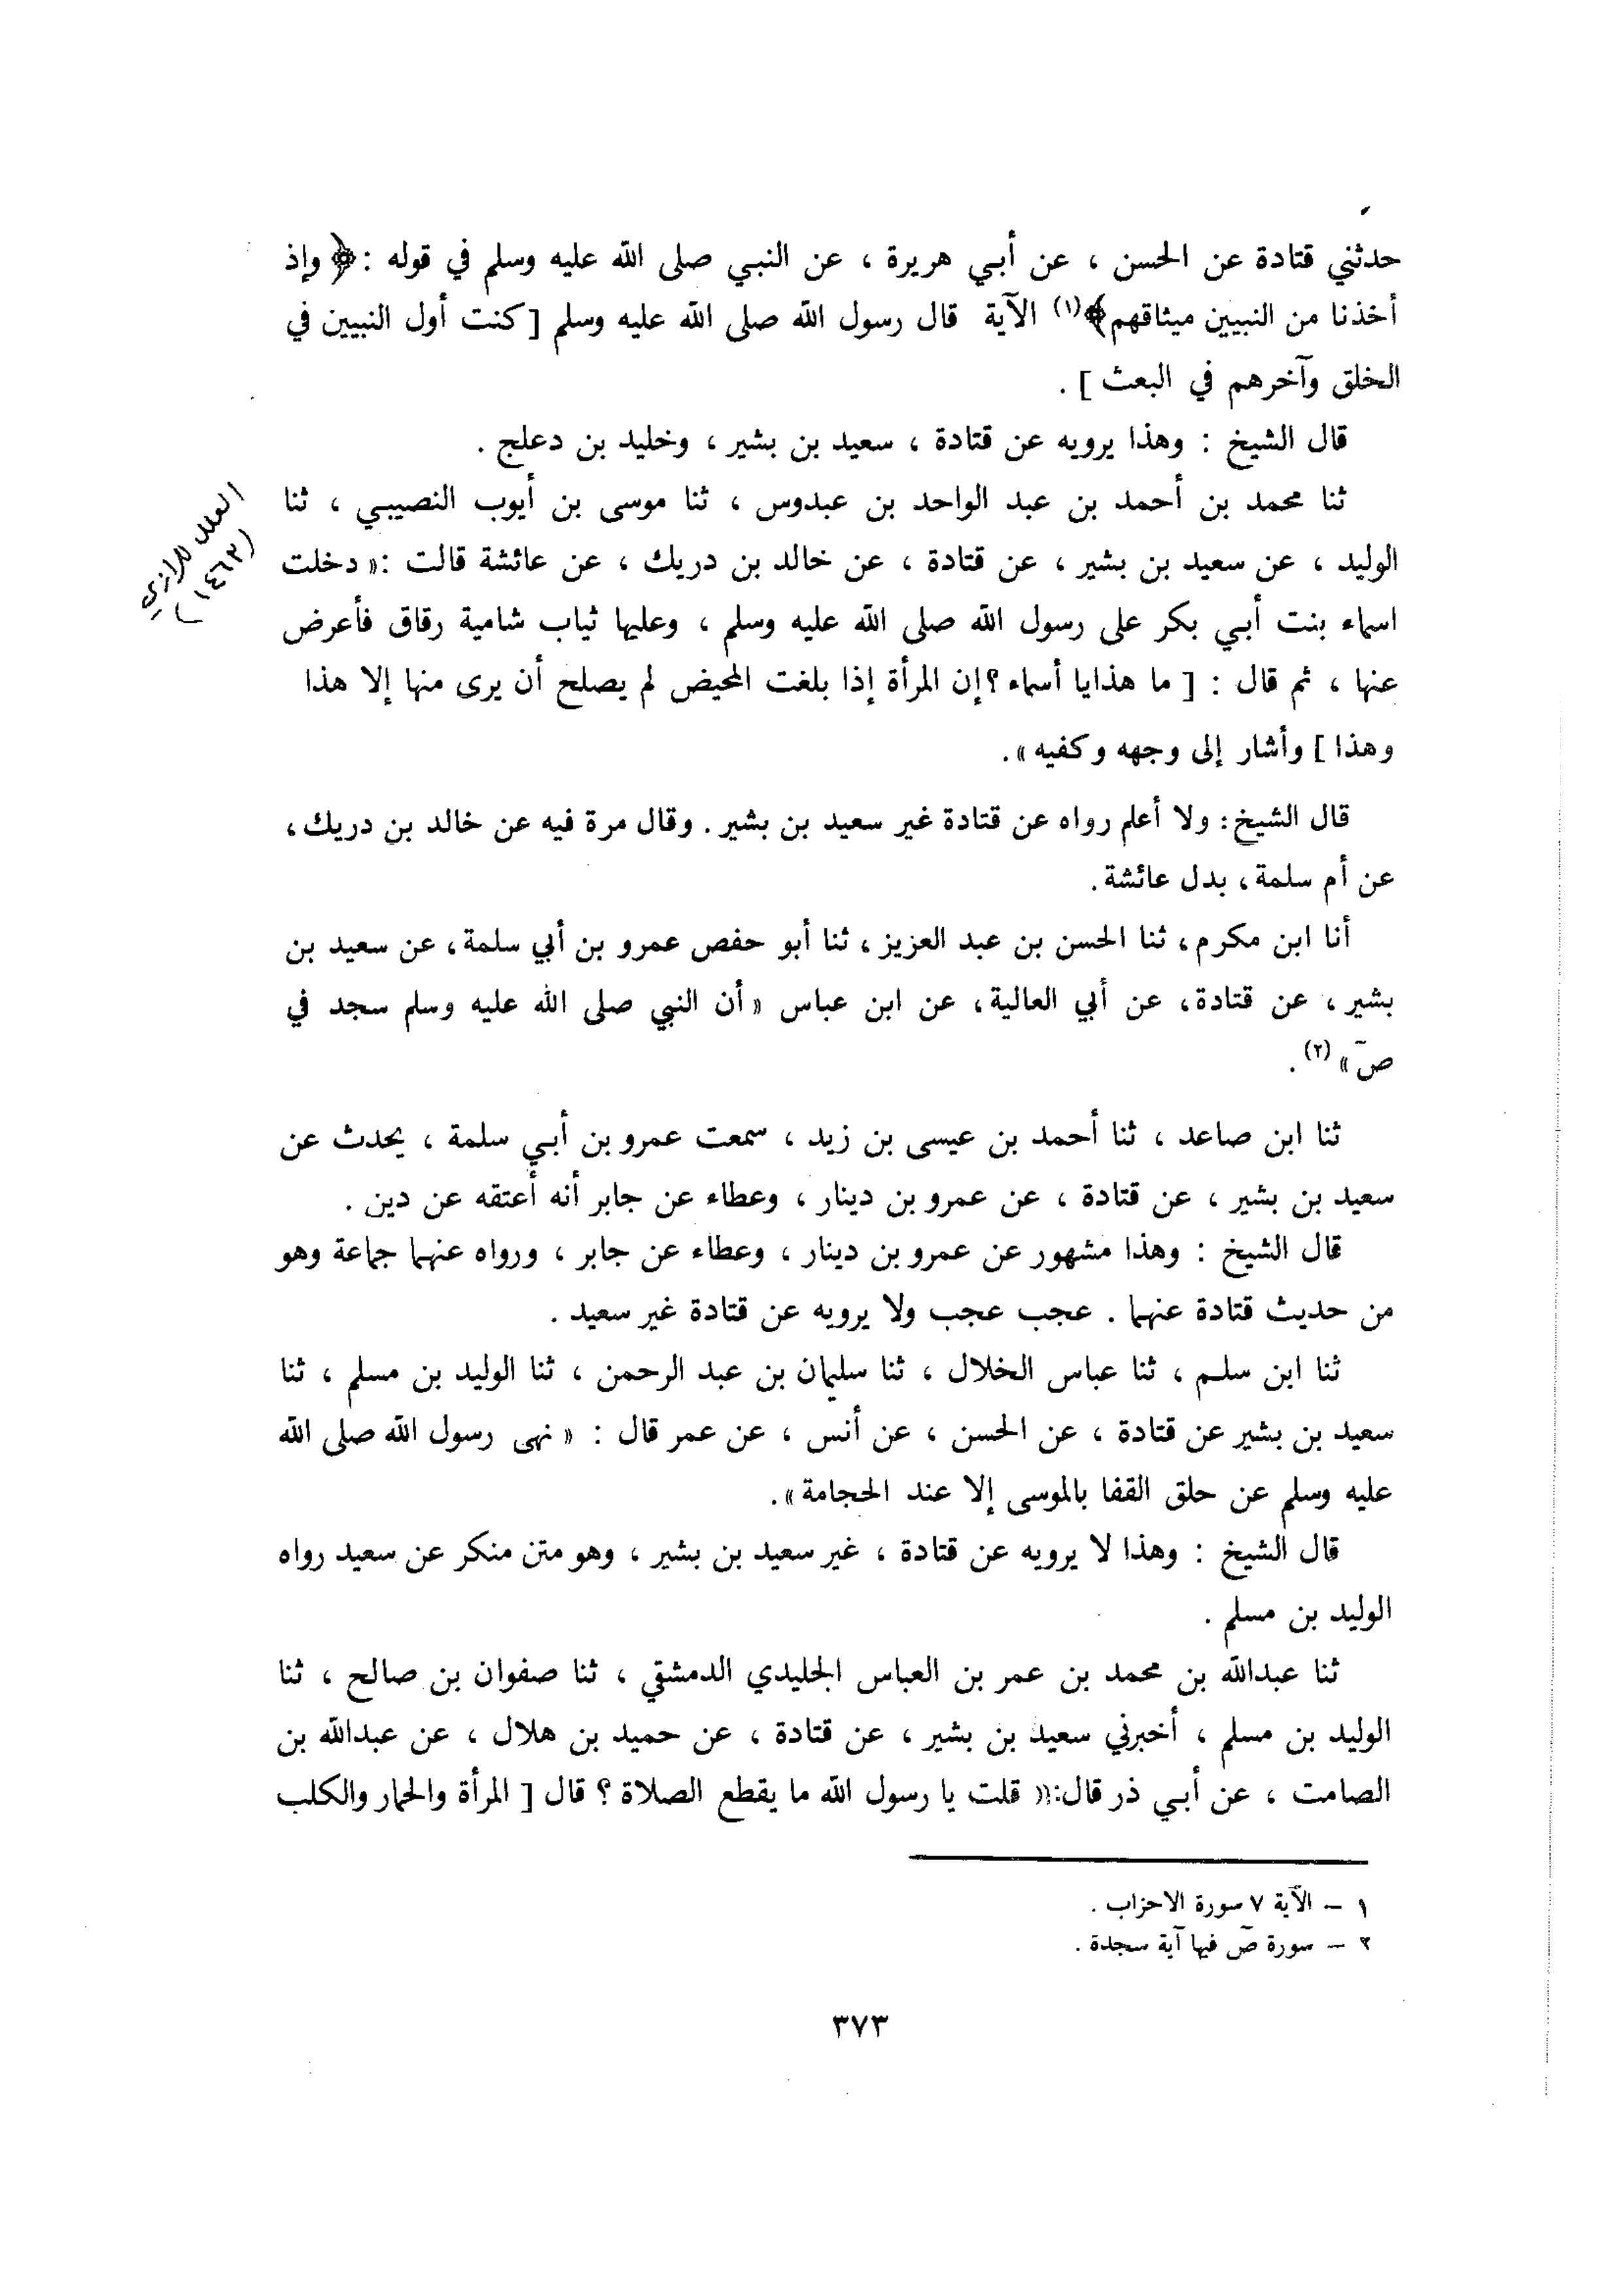 حدثني قتادة عن الحسن ، عن أبي هريرة ، عن النبي صلى الله عليه وسلم في قوله : ﴿ وإذ
أخذنا من النبيين ميثاقهم﴾(١) الآية قال رسول الله صلى الله عليه وسلم [ كنت أول النبيين في
الخلق وآخرهم في البعث ] .
قال الشيخ : وهذا يرويه عن قتادة ، سعيد بن بشير ، وخليد بن دعلج .
ثنا محمد بن أحمد بن عبد الواحد بن عبدوس ، ثنا موسى بن أيوب النصيبي ، ثنا
الوليد ، عن سعيد بن بشير ، عن قتادة ، عن خالد بن دريك ، عن عائشة قالت :« دخلت
اسماء بنت أبي بكر على رسول الله صلى الله عليه وسلم ، وعليها ثياب شامية رقاق فأعرض
عنها ، ثم قال : [ ما هذايا أسماء ؟ إن المرأة إذا بلغت المحيض لم يصلح أن يرى منها إلا هذا
وهذا ] وأشار إلى وجهه وكفيه » .
قال الشيخ : ولا أعلم رواه عن قتادة غير سعيد بن بشير . وقال مرة فيه عن خالد بن دريك ،
عن أم سلمة ، بدل عائشة .
أنا ابن مكرم ، ثنا الحسن بن عبد العزيز ، ثنا أبو حفص عمرو بن أبي سلمة ، عن سعيد بن
بشير ، عن قتادة ، عن أبي العالية ، عن ابن عباس « أن النبي صلى الله عليه وسلم سجد في
صۤ » (٢) .
ثنا ابن صاعد ، ثنا أحمد بن عيسى بن زيد ، سمعت عمرو بن أبي سلمة ، يحدث عن
سعيد بن بشير ، عن قتادة ، عن عمرو بن دينار ، وعطاء عن جابر أنه أعتقه عن دين .
قال الشيخ : وهذا مشهور عن عمرو بن دينار ، وعطاء عن جابر ، ورواه عنهما جماعة وهو
من حديث قتادة عنهما . عجب عجب ولا يرويه عن قتادة غير سعيد .
ثنا ابن سلم ، ثنا عباس الخلال ، ثنا سليمان بن عبد الرحمن ، ثنا الوليد بن مسلم ، ثنا
سعيد بن بشير عن قتادة ، عن الحسن ، عن أنس ، عن عمر قال : « نهى رسول الله صلى الله
عليه وسلم عن حلق القفا بالموسى إلا عند الحجامة » .
قال الشيخ : وهذا لا يرويه عن قتادة ، غير سعيد بن بشير ، وهو متن منكر عن سعيد رواه
الوليد بن مسلم .
ثنا عبدالله بن محمد بن عمر بن العباس الجليدي الدمشقي ، ثنا صفوان بن صالح ، ثنا
الوليد بن مسلم ، أخبرني سعيد بن بشير ، عن قتادة ، عن حميد بن هلال ، عن عبدالله بن
الصامت ، عن أبي ذر قال:« قلت يا رسول الله ما يقطع الصلاة ؟ قال [ المرأة والحمار والكلب
١ – الآية ٧ سورة الاحزاب .
٢ – سورة صۤ فيها آية سجدة .
٣٧٣
العلل للرازي
(١٤٦٣)